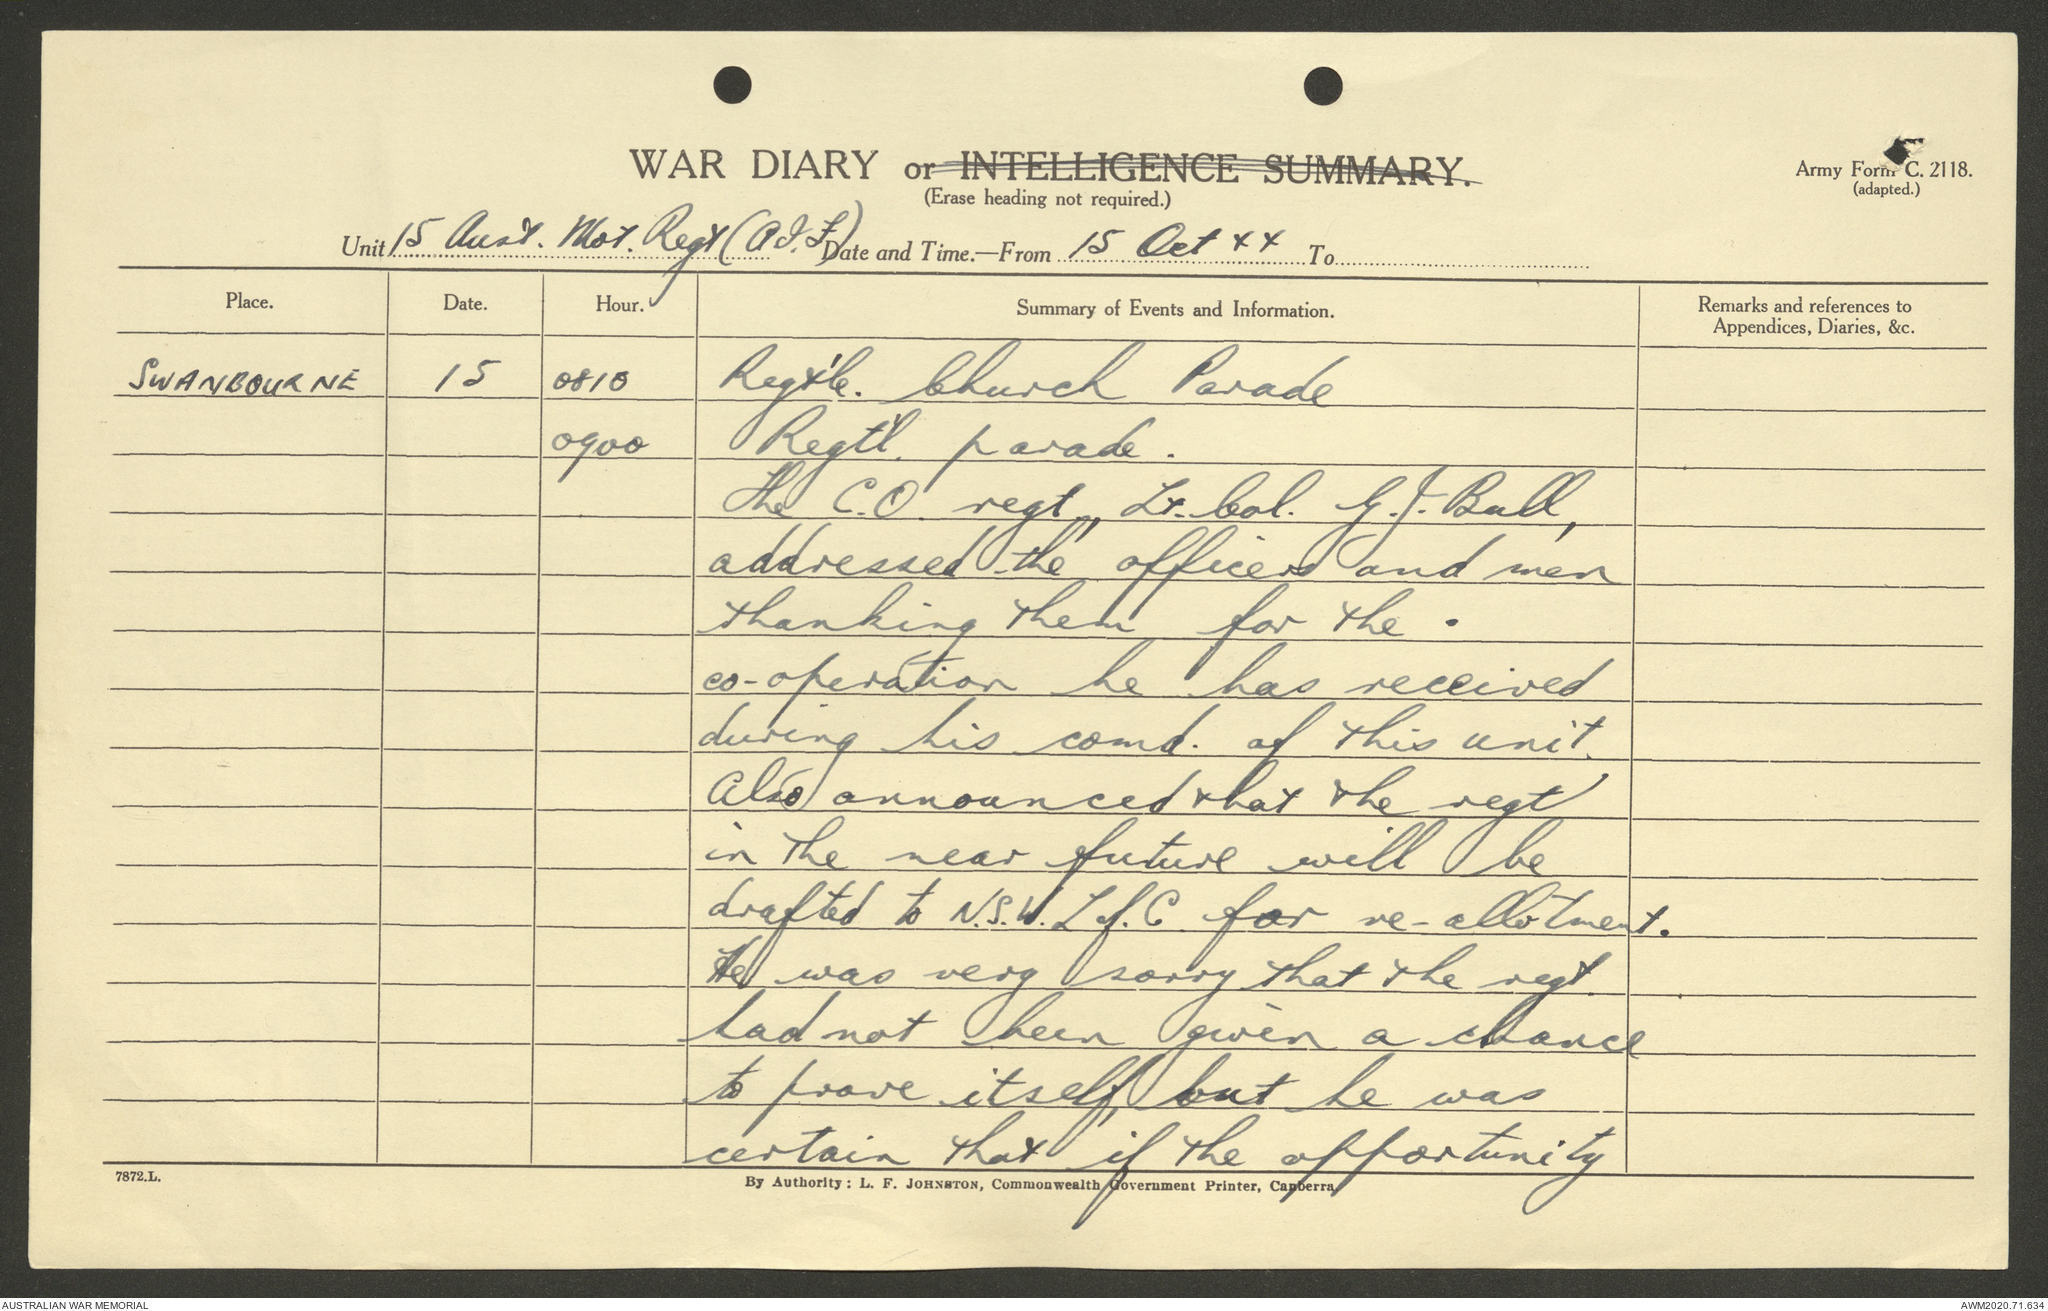 WAR DIARY or INTELLIGENCE SUMMARY.
(Erase heading not required.)
Army Form C. 2118.
(adapted.)
Unit 15 Aust. Mot. Regt (A.I.F) Date and Time.—From 15 Oct 44 To
Place. Date. Hour. Summary of Events and Information. Remarks and references to Appendices, Diaries, &c.
SWANBOURNE 15 0810 Regt'l. Church Parade
0900 Regt'l. parade.
The C.O. regt, Lt. Col. G.J. Bull,
addressed the officers and men
thanking them for the
co-operation he has received
during his comd. of this unit.
Also announced that the regt
in the near future will be
drafted to N.S.W. L of. C for re-allotment.
He was very sorry that the regt.
had not been given a chance
to prove itself, but he was
certain that if the opportunity
7872.L.
By Authority: L. F. JOHNSTON, Commonwealth Government Printer, Canberra.
AUSTRALIAN WAR MEMORIAL
AWM2020.71.634